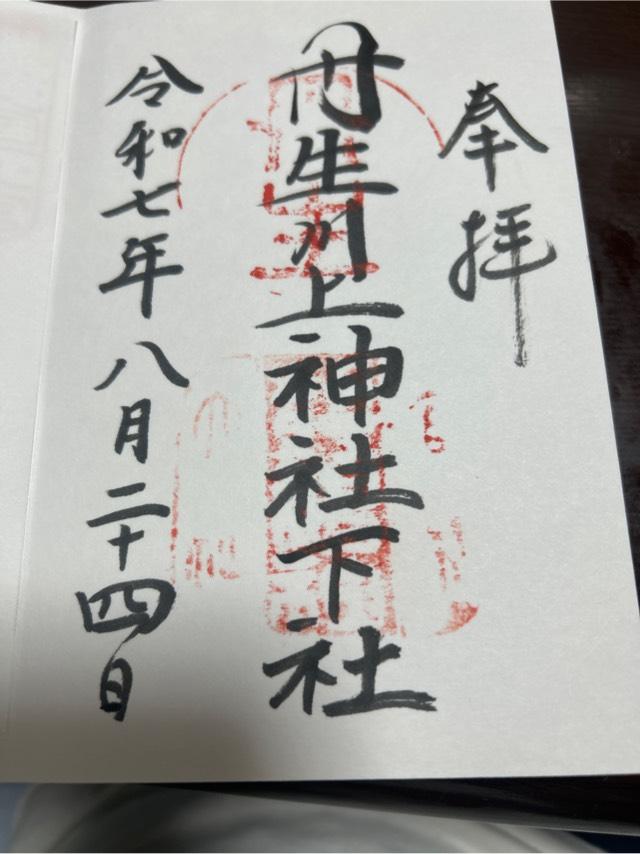 奉拝
丹生川上神社下社
令和七年八月二十四日